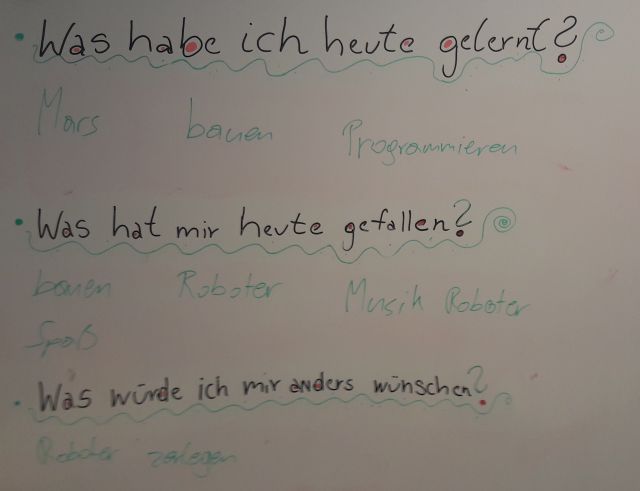 Was habe ich heute gelernt?
Mars bauen Programmieren
Was hat mir heute gefallen?
bauen Roboter Musik Roboter
Spaß
Was würde ich mir anders wünschen?
Roboter zerlegen